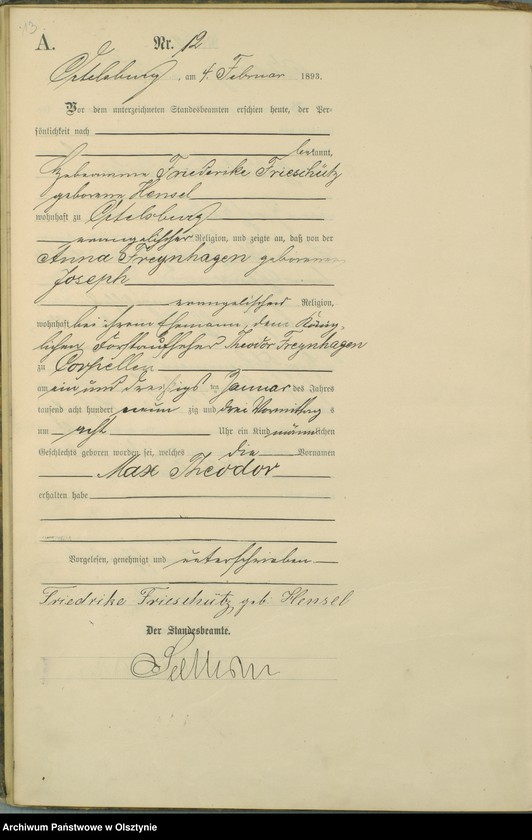 13.
A. Nr. 12
Ortelsburg, am 4. Februar 1893.
Vor dem unterzeichneten Standesbeamten erschien heute, der Per-
sönlichkeit nach
bekannt,
Hebamme Friederike Frieschütz
geborene Hensel
wohnhaft zu Ortelsburg
evangelischer Religion, und zeigte an, daß von der
Anna Freynhagen geborenen
Joseph
evangelischer Religion,
wohnhaft bei ihrem Ehemann, dem König-
lichen Forstaufseher Theodor Freynhagen
zu Corpellen
am ein und dreißigs ten Januar des Jahres
tausend acht hundert neun zig und drei Vormittag s
um acht Uhr ein Kind männlichen
Geschlechts geboren worden sei, welches die Vornamen
Max Theodor
erhalten habe
Vorgelesen, genehmigt und unterschrieben
Friedrike Frieschütz geb: Hensel
Der Standesbeamte.
Archiwum Państwowe w Olsztynie